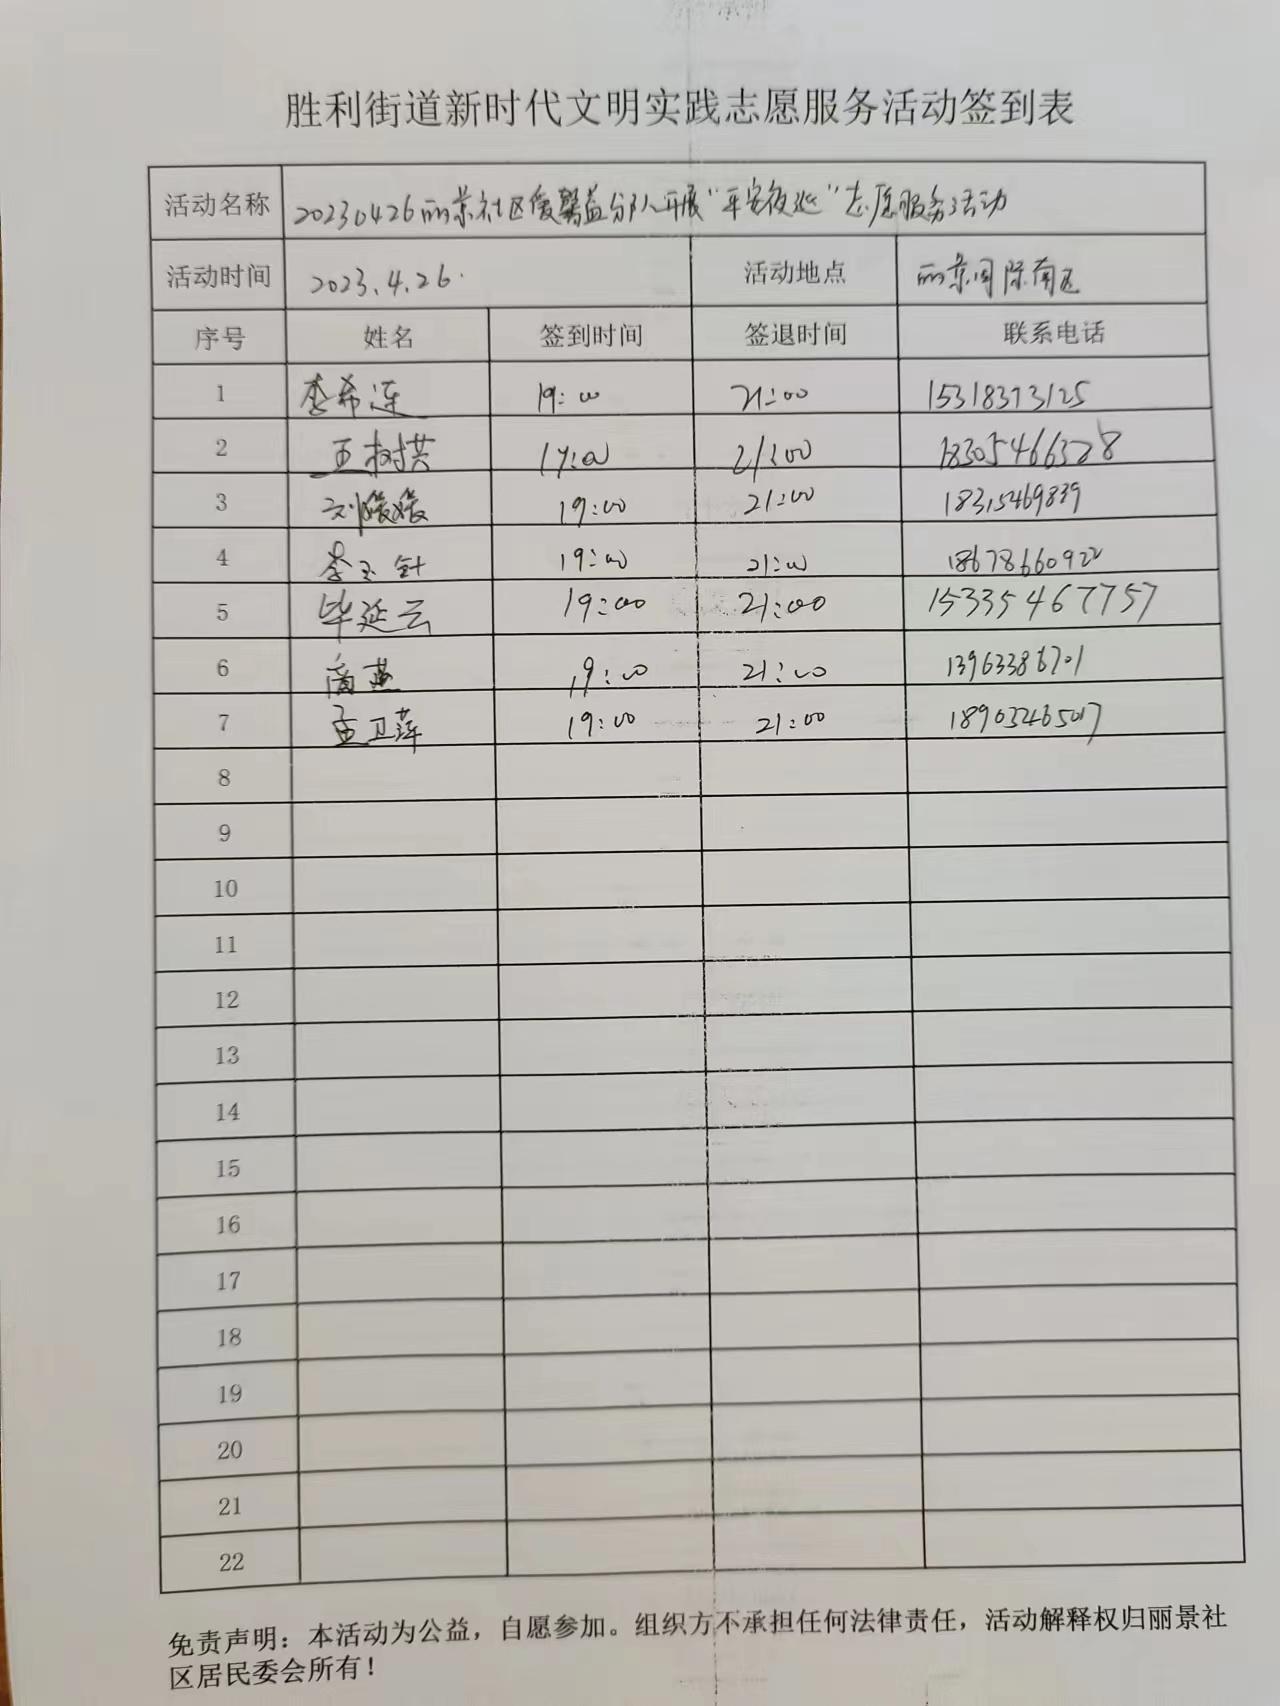 胜利街道新时代文明实践志愿服务活动签到表
活动名称 20230426丽景社区爱馨益分队开展“平安夜巡”志愿服务活动
活动时间 2023.4.26. 活动地点 丽景国际南区
序号 姓名 签到时间 签退时间 联系电话
1 李希莲 19:00 21:00 15318373125
2 王树芸 19:00 21:00 18305466328
3 刘媛媛 19:00 21:00 18315469839
4 李玉针 19:00 21:00 18678660922
5 毕延云 19:00 21:00 15335467757
6 商燕 19:00 21:00 13963386701
7 孟卫萍 19:00 21:00 18903465017
8
9
10
11
12
13
14
15
16
17
18
19
20
21
22
免责声明：本活动为公益，自愿参加。组织方不承担任何法律责任，活动解释权归丽景社
区居民委会所有！